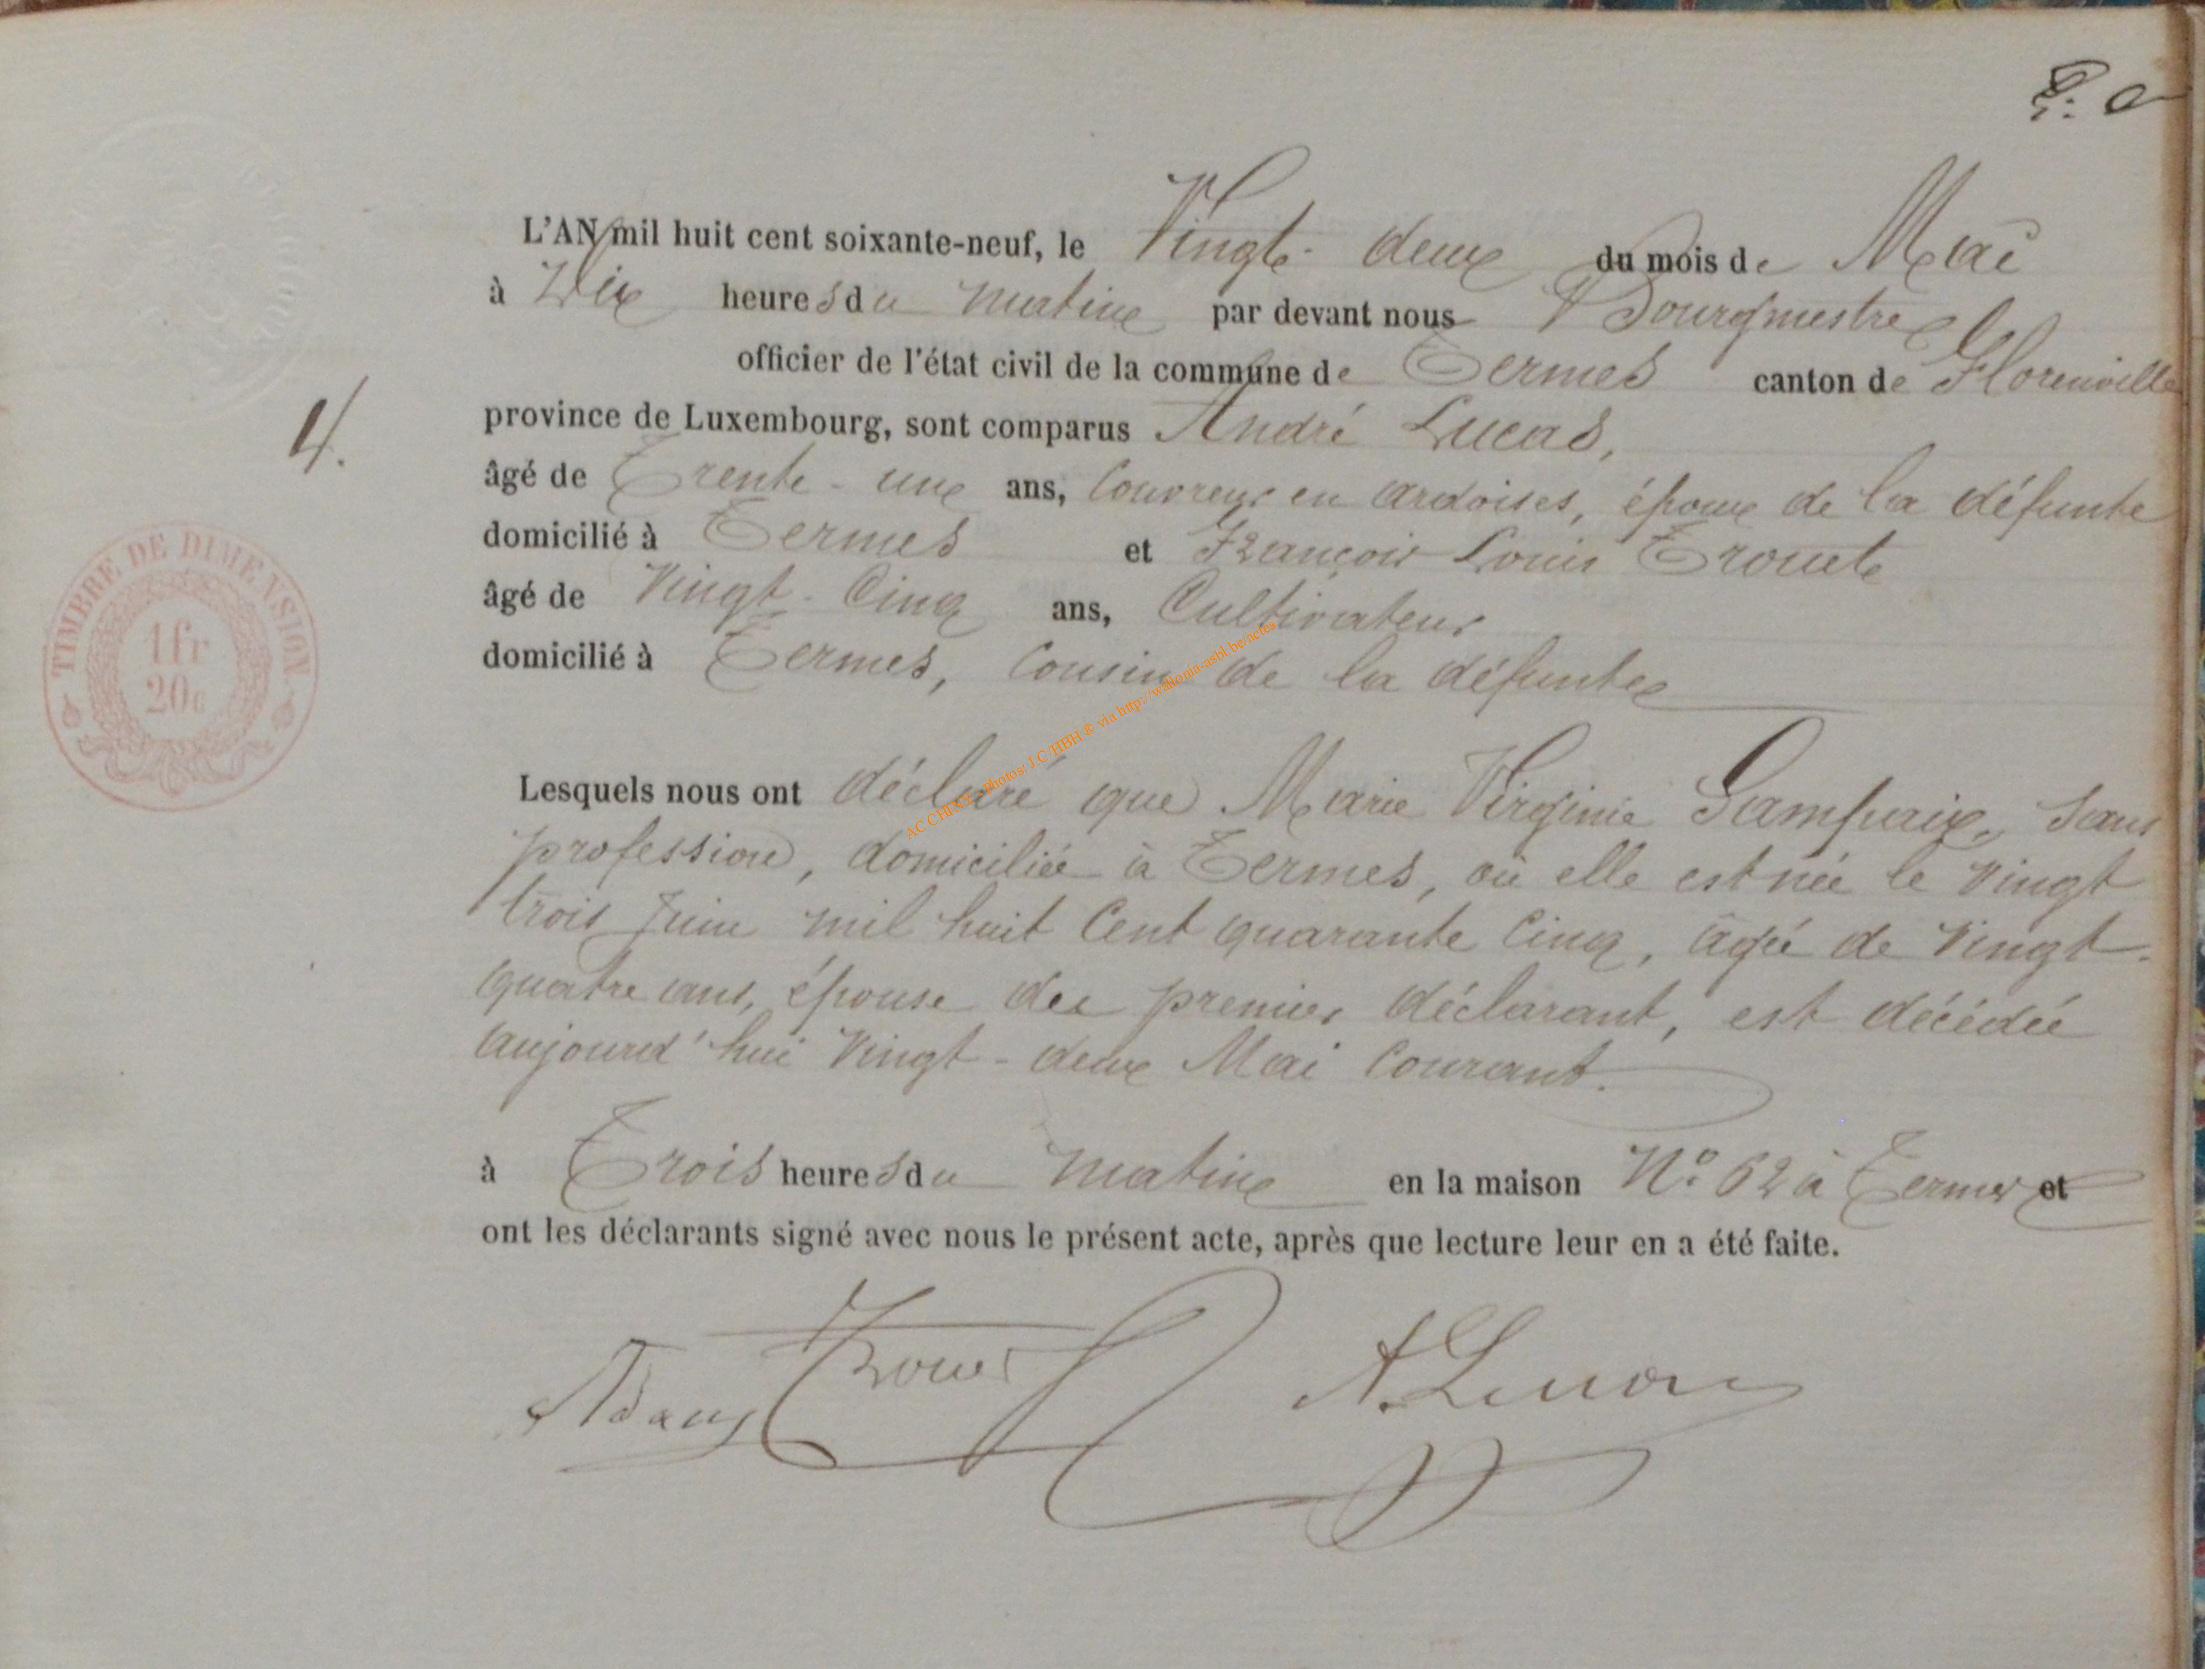 L'AN mil huit cent soixante-neuf, le Vingt-deux du mois de Mai
à Dix heures du matin par devant nous Bourgmestre
officier de l'état civil de la commune de Termes canton de Florenville
province de Luxembourg, sont comparus André Lucas,
4.
âgé de Trente-un ans, Couvreur en ardoises, époux de la défunte
domicilié à Termes et François Louis Trouet
âgé de Vingt-Cinq ans, Cultivateur
domicilié à Termes, Cousin de la défunte
TIMBRE DE DIMENSION
1fr
20c
AC CHINY - photos: J.C HBH ® via http://wallonia-asbl.be/actes
Lesquels nous ont déclaré que Marie Virginie Gampaix, sans
profession, domiciliée à Termes, où elle est née le Vingt
trois Juin mil huit Cent quarante Cinq, âgée de Vingt-
quatre ans, épouse du premier déclarant, est décédée
aujourd'hui Vingt-deux Mai Courant.
à Trois heures du matin en la maison N° 62 à Termes et
ont les déclarants signé avec nous le présent acte, après que lecture leur en a été faite.
Trouet